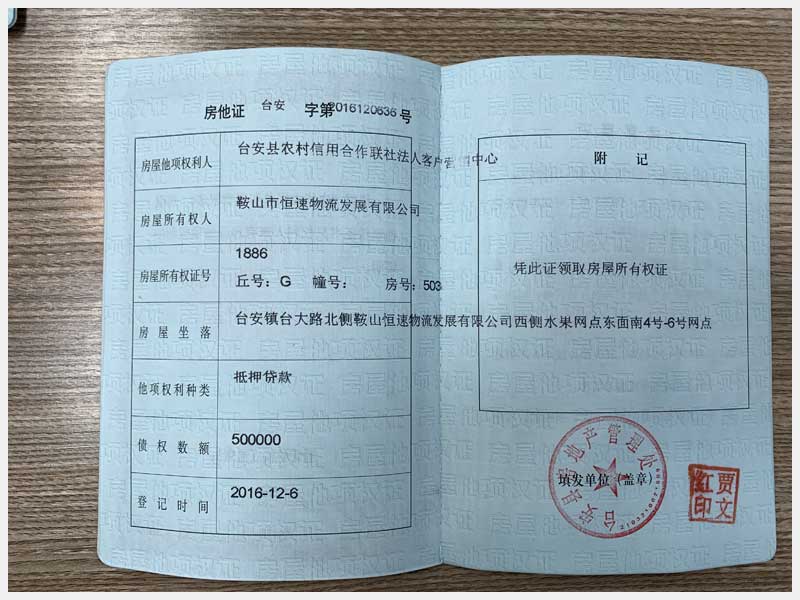 房他证 台安 字第2016120636号
房屋他项权利人 台安县农村信用合作联社法人客户营销中心
房屋所有权人 鞍山市恒速物流发展有限公司
房屋所有权证号 1886
丘号：G 幢号： 房号：503
房屋坐落 台安镇台大路北侧鞍山恒速物流发展有限公司西侧水果网点东面南4号-6号网点
他项权利种类 抵押贷款
债权数额 500000
登记时间 2016-12-6
附记
凭此证领取房屋所有权证
填发单位（盖章）
台安县房地产管理处
贾文红印